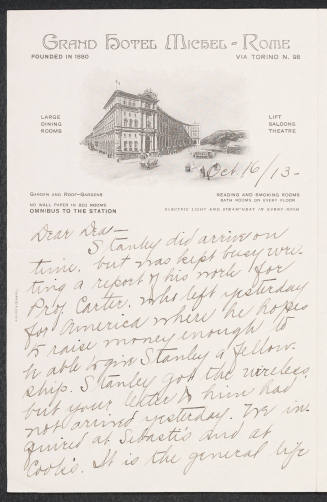 GRAND HOTEL MICHEL - ROME
FOUNDED IN 1880
VIA TORINO N. 98
LARGE
DINING
ROOMS
LIFT
SALOONS
THEATRE
Oct. 16/13-
GARDEN AND ROOF-GARDENS
NO WALL PAPER IN BED ROOMS
OMNIBUS TO THE STATION
READING AND SMOKING ROOMS
BATH ROOMS ON EVERY FLOOR
ELECTRIC LIGHT AND STEAM-HEAT IN EVERY ROOM
Dear Dea-
Stanley did arrive on
time. but was kept busy wri-
ting a report of his work for
Prof. Carter. who left yesterday
for America where he hopes
to raise money enough to
be able to give Stanley a fellow-
ship. Stanley got the wireless
but your letter to him had
not arrived yesterday. We in-
quired at Sebasti's and at
Cook's. It is the general life